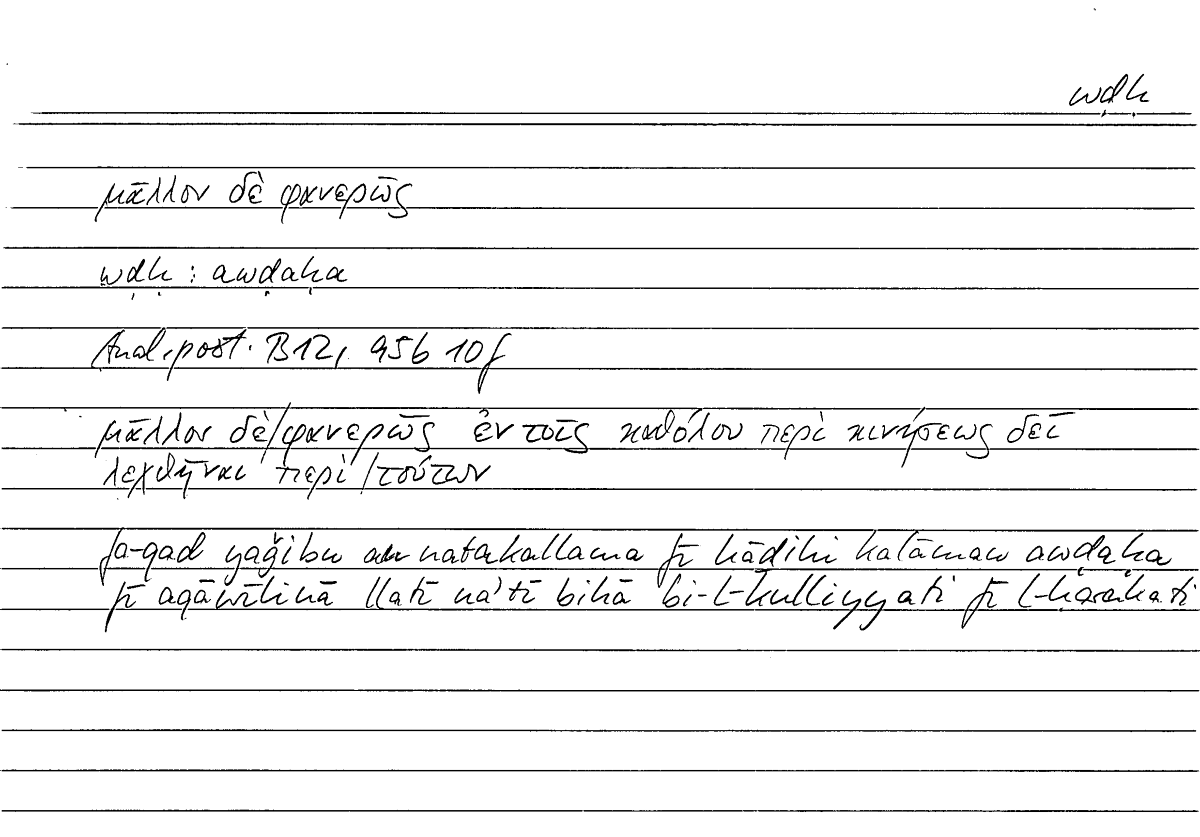 wḍḥ
μᾶλλον δὲ φανερῶς
wḍḥ : awḍaḥa
Anal. post. B12, 95b 10f
μᾶλλον δὲ/φανερῶς ἐν τοῖς καθόλου περὶ κινήσεως δεῖ
λεχθῆναι περὶ/τούτων
fa-qad yaǧibu an natakallama fī hāḏihi kalāman awḍaḥa
fī aqāwīlinā llatī na'tī bihā bi-l-kulliyyati fī l-ḥarakati